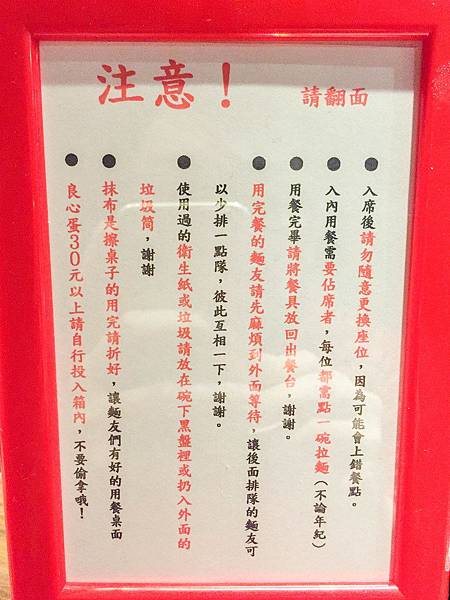 注意！
請翻面
●入席後請勿隨意更換座位，因為可能會上錯餐點。
●入內用餐需要佔席者，每位都需點一碗拉麵（不論年紀）
●用餐完畢請將餐具放回出餐台，謝謝。
●用完餐的麵友請先麻煩到外面等待，讓後面排隊的麵友可
以少排一點隊，彼此互相一下，謝謝。
●使用過的衛生紙或垃圾請放在碗下黑盤裡或扔入外面的
垃圾筒，謝謝
●抹布是擦桌子的用完請折好，讓麵友們有好的用餐桌面
●良心蛋30元以上請自行投入箱內，不要偷拿哦！